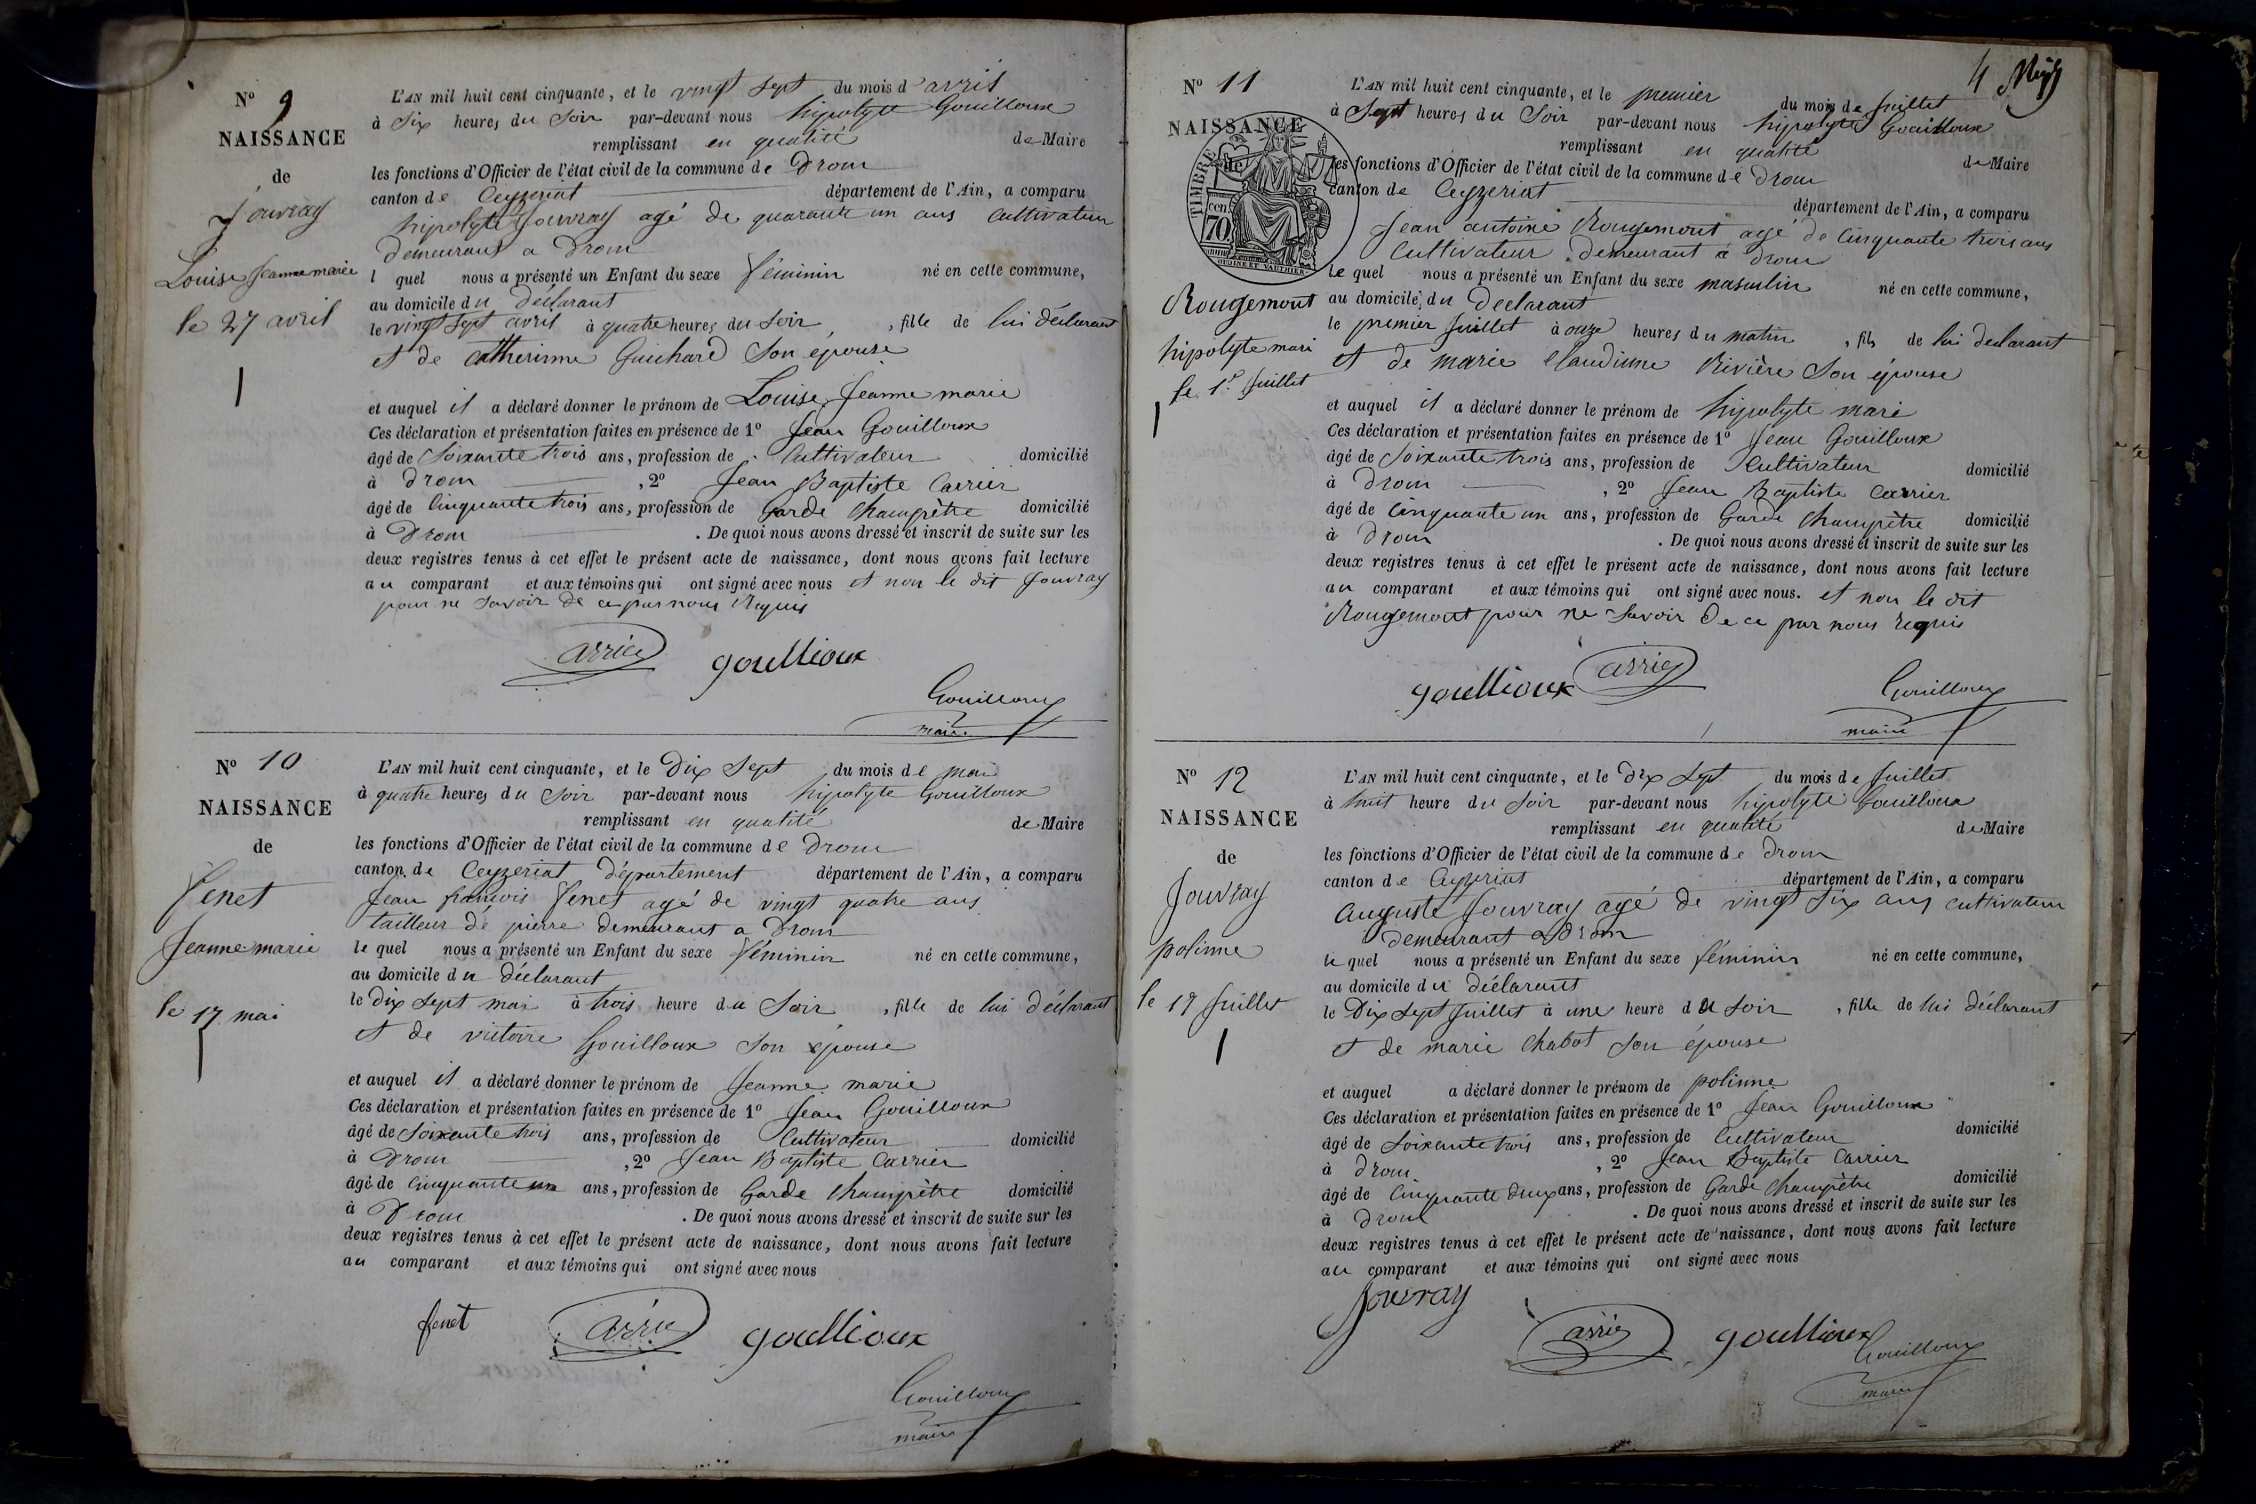 N° 9
NAISSANCE
de
Jouvray
Louise Jeanne marie
le 27 avril
L'AN mil huit cent cinquante, et le vingt sept du mois d'avril
à Six heures du Soir par-devant nous hipolyte Gouilloux
remplissant en qualité de Maire
les fonctions d'Officier de l'état civil de la commune de Drom
canton de Ceyzeriat département de l'Ain, a comparu
hipolyte Jouvray agé de quarante un ans Cultivateur
Demeurant a Drom
l quel nous a présenté un Enfant du sexe féminin né en cette commune,
au domicile du déclarant
le vingt sept avril à quatre heures du Soir, fille de lui déclarant
et de Catherinne Guichard Son épouse
et auquel il a déclaré donner le prénom de Louise Jeanne marie
Ces déclaration et présentation faites en présence de 1° Jean Gouilloux
âgé de Soixante trois ans, profession de Cultivateur domicilié
à Drom, 2° Jean Baptiste Carrier
âgé de Cinquante trois ans, profession de Garde Champètre domicilié
à Drom. De quoi nous avons dressé et inscrit de suite sur les
deux registres tenus à cet effet le présent acte de naissance, dont nous avons fait lecture
au comparant et aux témoins qui ont signé avec nous et non le dit Jouvray
pour ne Savoir De ce par nous Requis
Carrier goullioux
Gouilloux
maire
N° 10
NAISSANCE
de
Fenet
Jeanne marie
le 17 mai
L'AN mil huit cent cinquante, et le Dix Sept du mois de mai
à quatre heures du Soir par-devant nous hipolyte Gouilloux
remplissant en qualité de Maire
les fonctions d'Officier de l'état civil de la commune de Drom
canton de Ceyzeriat Département département de l'Ain, a comparu
Jean francois Fenet agé de vingt quatre ans
tailleur de pierre demeurant a Drom
le quel nous a présenté un Enfant du sexe féminin né en cette commune,
au domicile du déclarant
le Dix Sept mai à trois heure du Soir, fille de lui Déclarant
et de victoire Gouilloux Son épouse
et auquel il a déclaré donner le prénom de Jeanne marie
Ces déclaration et présentation faites en présence de 1° Jean Gouilloux
âgé de Soixante trois ans, profession de Cultivateur domicilié
à Drom, 2° Jean Baptiste Carrier
âgé de Cinquante un ans, profession de Garde Champètre domicilié
à Drom. De quoi nous avons dressé et inscrit de suite sur les
deux registres tenus à cet effet le présent acte de naissance, dont nous avons fait lecture
au comparant et aux témoins qui ont signé avec nous
fenet Carrier goullioux
Gouilloux
maire
4
N° 11
NAISSANCE
de
TIMBRE
cen.
70
Rougemont
hipolyte mari
le 1er Juillet
L'AN mil huit cent cinquante, et le premier du mois de Juillet
à Sept heures du Soir par-devant nous hipolyte Gouilloux
remplissant en qualité de Maire
les fonctions d'Officier de l'état civil de la commune de Drom
canton de Ceyzeriat département de l'Ain, a comparu
Jean antoine Rougemont agé de Cinquante trois ans
Cultivateur Demeurant à Drom
le quel nous a présenté un Enfant du sexe masculin né en cette commune,
au domicile du Declarant
le premier Juillet à onze heures du matin, fils de lui declarant
et de marie Claudinne Rivière Son épouse
et auquel il a déclaré donner le prénom de hipolyte mari
Ces déclaration et présentation faites en présence de 1° Jean Gouilloux
âgé de Soixante trois ans, profession de Cultivateur domicilié
à Drom, 2° Jean Baptiste Carrier
âgé de Cinquante un ans, profession de Garde Champètre domicilié
à Drom. De quoi nous avons dressé et inscrit de suite sur les
deux registres tenus à cet effet le présent acte de naissance, dont nous avons fait lecture
au comparant et aux témoins qui ont signé avec nous. et non le dit
Rougemont pour ne Savoir De ce par nous requis
goullioux Carrier
Gouilloux
maire
N° 12
NAISSANCE
de
Jouvray
polinne
le 17 Juillet
L'AN mil huit cent cinquante, et le Dix Sept du mois de Juillet
à huit heure du Soir par-devant nous hipolyte Gouilloux
remplissant en qualité de Maire
les fonctions d'Officier de l'état civil de la commune de Drom
canton de Ceyzeriat département de l'Ain, a comparu
auguste Jouvray agé de vingt Six ans cultivateur
demeurant a Drom
le quel nous a présenté un Enfant du sexe féminin né en cette commune,
au domicile du déclarant
le Dix Sept Juillet à une heure du Soir, fille de lui déclarant
et de marie Chabot Son épouse
et auquel a déclaré donner le prénom de polinne
Ces déclaration et présentation faites en présence de 1° Jean Gouilloux
âgé de Soixante trois ans, profession de Cultivateur domicilié
à Drom, 2° Jean Baptiste Carrier
âgé de Cinquante deux ans, profession de Garde Champètre domicilié
à Drom. De quoi nous avons dressé et inscrit de suite sur les
deux registres tenus à cet effet le présent acte de naissance, dont nous avons fait lecture
au comparant et aux témoins qui ont signé avec nous
Jouvray
Carrier goullioux
Gouilloux
maire